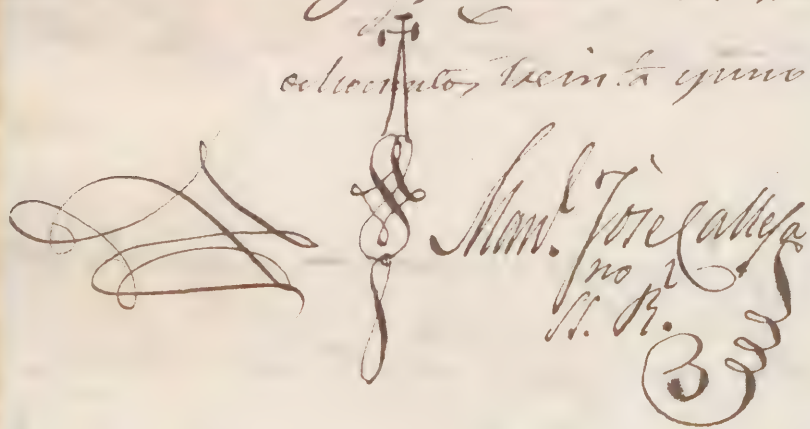 ochocientos, treinta y uno
Man.l José Calleja
no
SS. R.